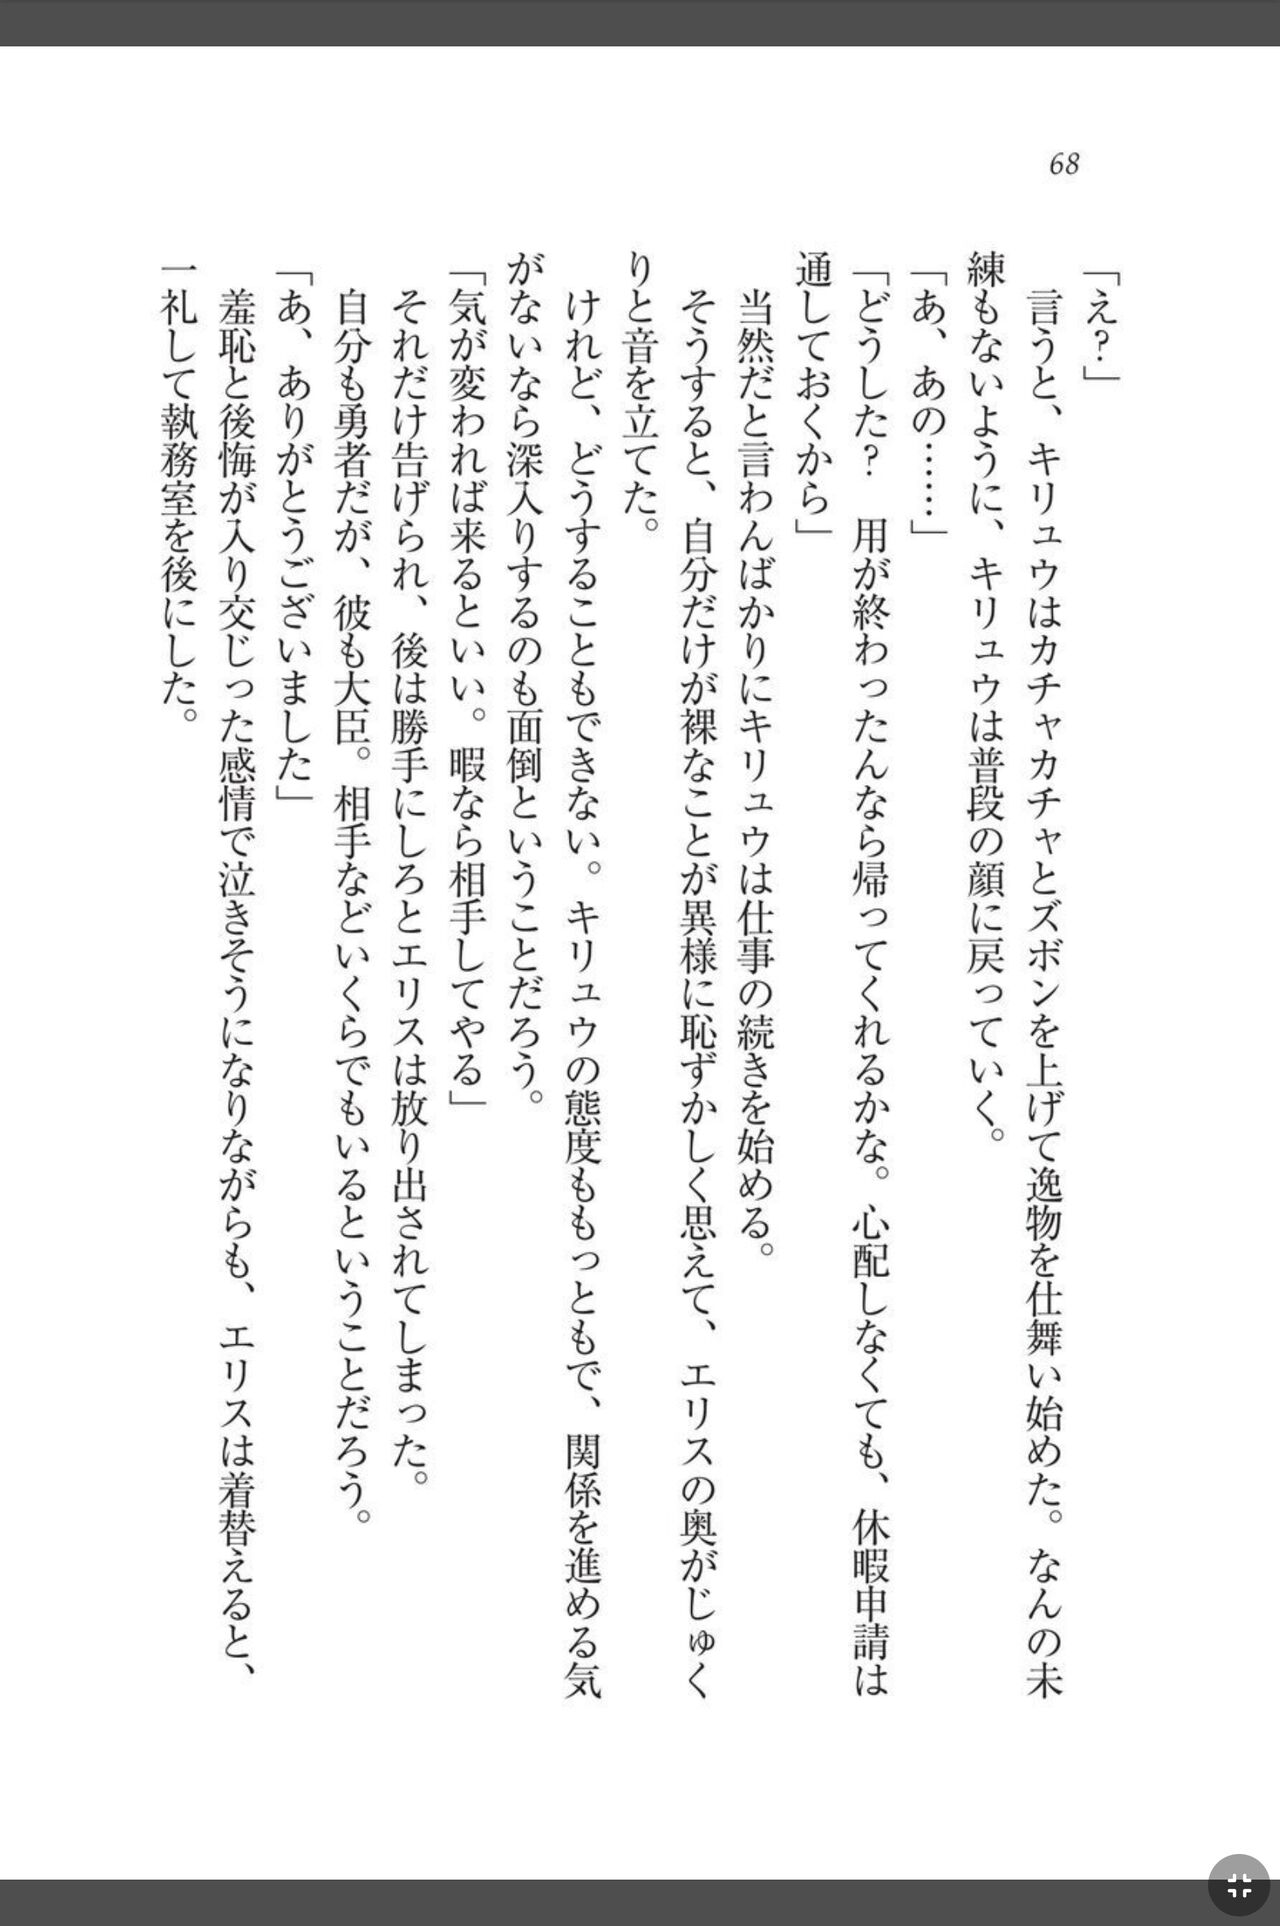 68
「え？」
　言うと、キリュウはカチャカチャとズボンを上げて逸物を仕舞い始めた。なんの未
練もないように、キリュウは普段の顔に戻っていく。
「あ、あの……」
「どうした？　用が終わったんなら帰ってくれるかな。心配しなくても、休暇申請は
通しておくから」
　当然だと言わんばかりにキリュウは仕事の続きを始める。
　そうすると、自分だけが裸なことが異様に恥ずかしく思えて、エリスの奥がじゅく
りと音を立てた。
　けれど、どうすることもできない。キリュウの態度ももっともで、関係を進める気
がないなら深入りするのも面倒ということだろう。
「気が変われば来るといい。暇なら相手してやる」
　それだけ告げられ、後は勝手にしろとエリスは放り出されてしまった。
　自分も勇者だが、彼も大臣。相手などいくらでもいるということだろう。
「あ、ありがとうございました」
　羞恥と後悔が入り交じった感情で泣きそうになりながらも、エリスは着替えると、
一礼して執務室を後にした。